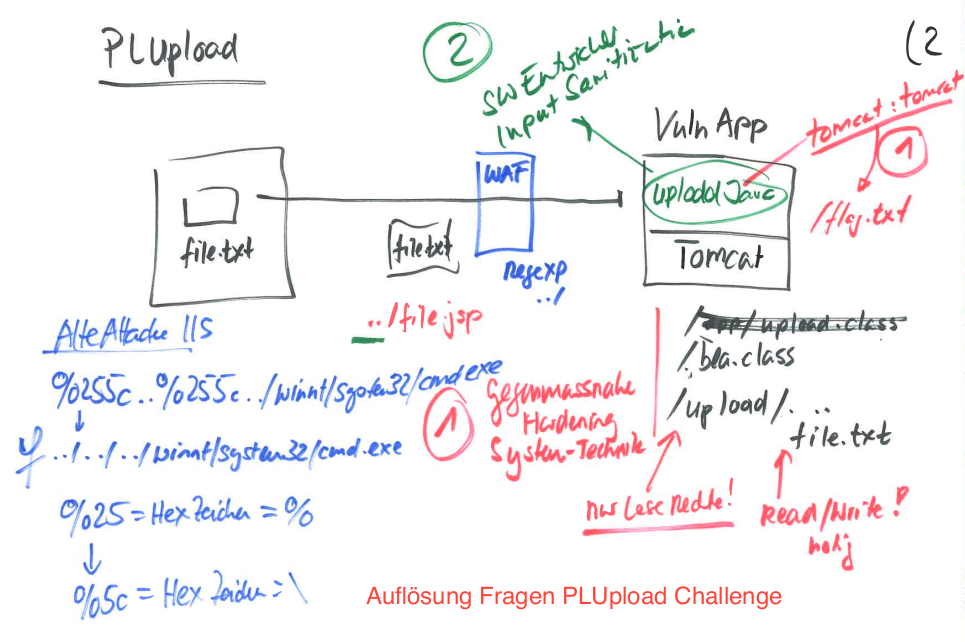 PLUpload
2
(2
SW Entwickler
Input Sanitization
VulnApp
tomcat:tomcat
1
/flag.txt
file.txt
file.txt
WAF
Regexp
../
upload Java
Tomcat
../file.jsp
Alte Attacke IIS
%255c..%255c../winnt/system32/cmd.exe
../../../winnt/system32/cmd.exe
%25 = Hex Zeichen = %
%5c = Hex Zeichen = \
1
Gegenmassnahme
Hardening
System-Technik
/app/upload.class
/bla.class
/upload/. ..
file.txt
nur Lese Rechte!
Read/Write!
nötig
Auflösung Fragen PLUpload Challenge